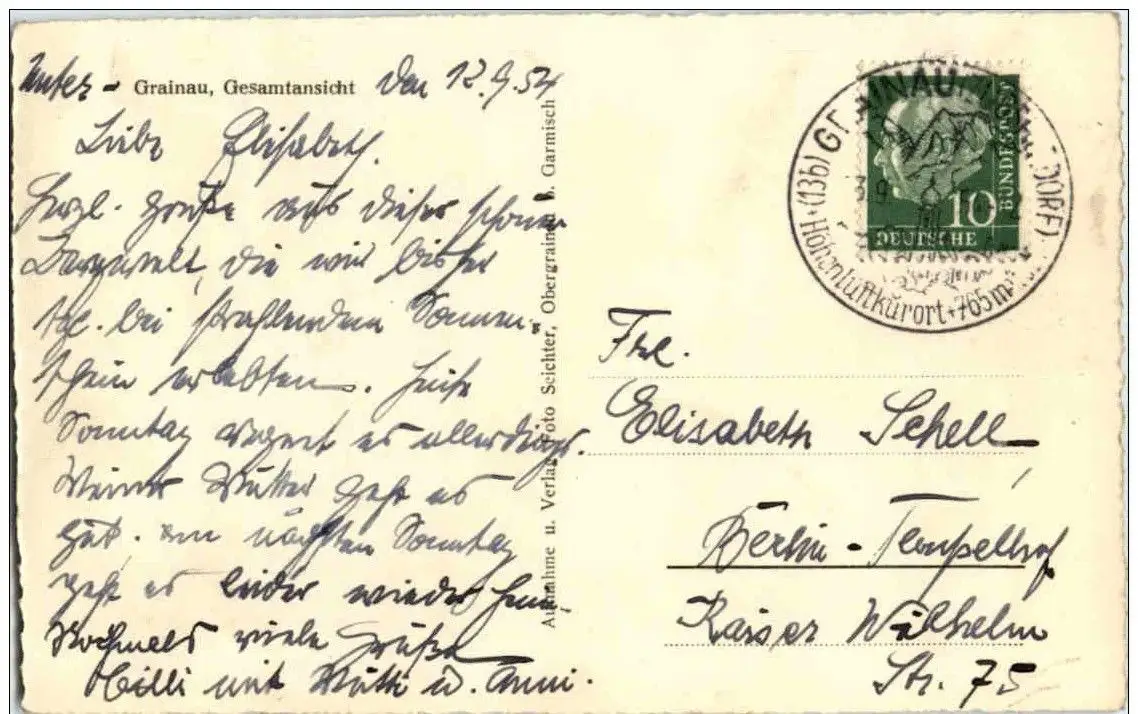 Unter - Grainau, Gesamtansicht den 12.9.54
Liebe Elisabeth.
Herzl. Grüße aus dieser schönen
Bergwelt, die wir bisher
tgl. bei strahlendem Sonnen-
schein erlebten. Heute
Sonntag regnet es allerdings.
Meiner Mutter geht es
gut. Am nächsten Sonntag
geht es leider wieder heim.
Nochmals viele Grüße
Cilli mit Mutti u. Anni.
Aufnahme u. Verlag Foto Seichter, Obergrainau b. Garmisch
(13b) GRAINAU DORF)
Höhenluftkurort + 765m
10
DEUTSCHE
BUNDESPOST
Frl.
Elisabeth Schell
Berlin - Tempelhof
Kaiser Wilhelm
Str. 75